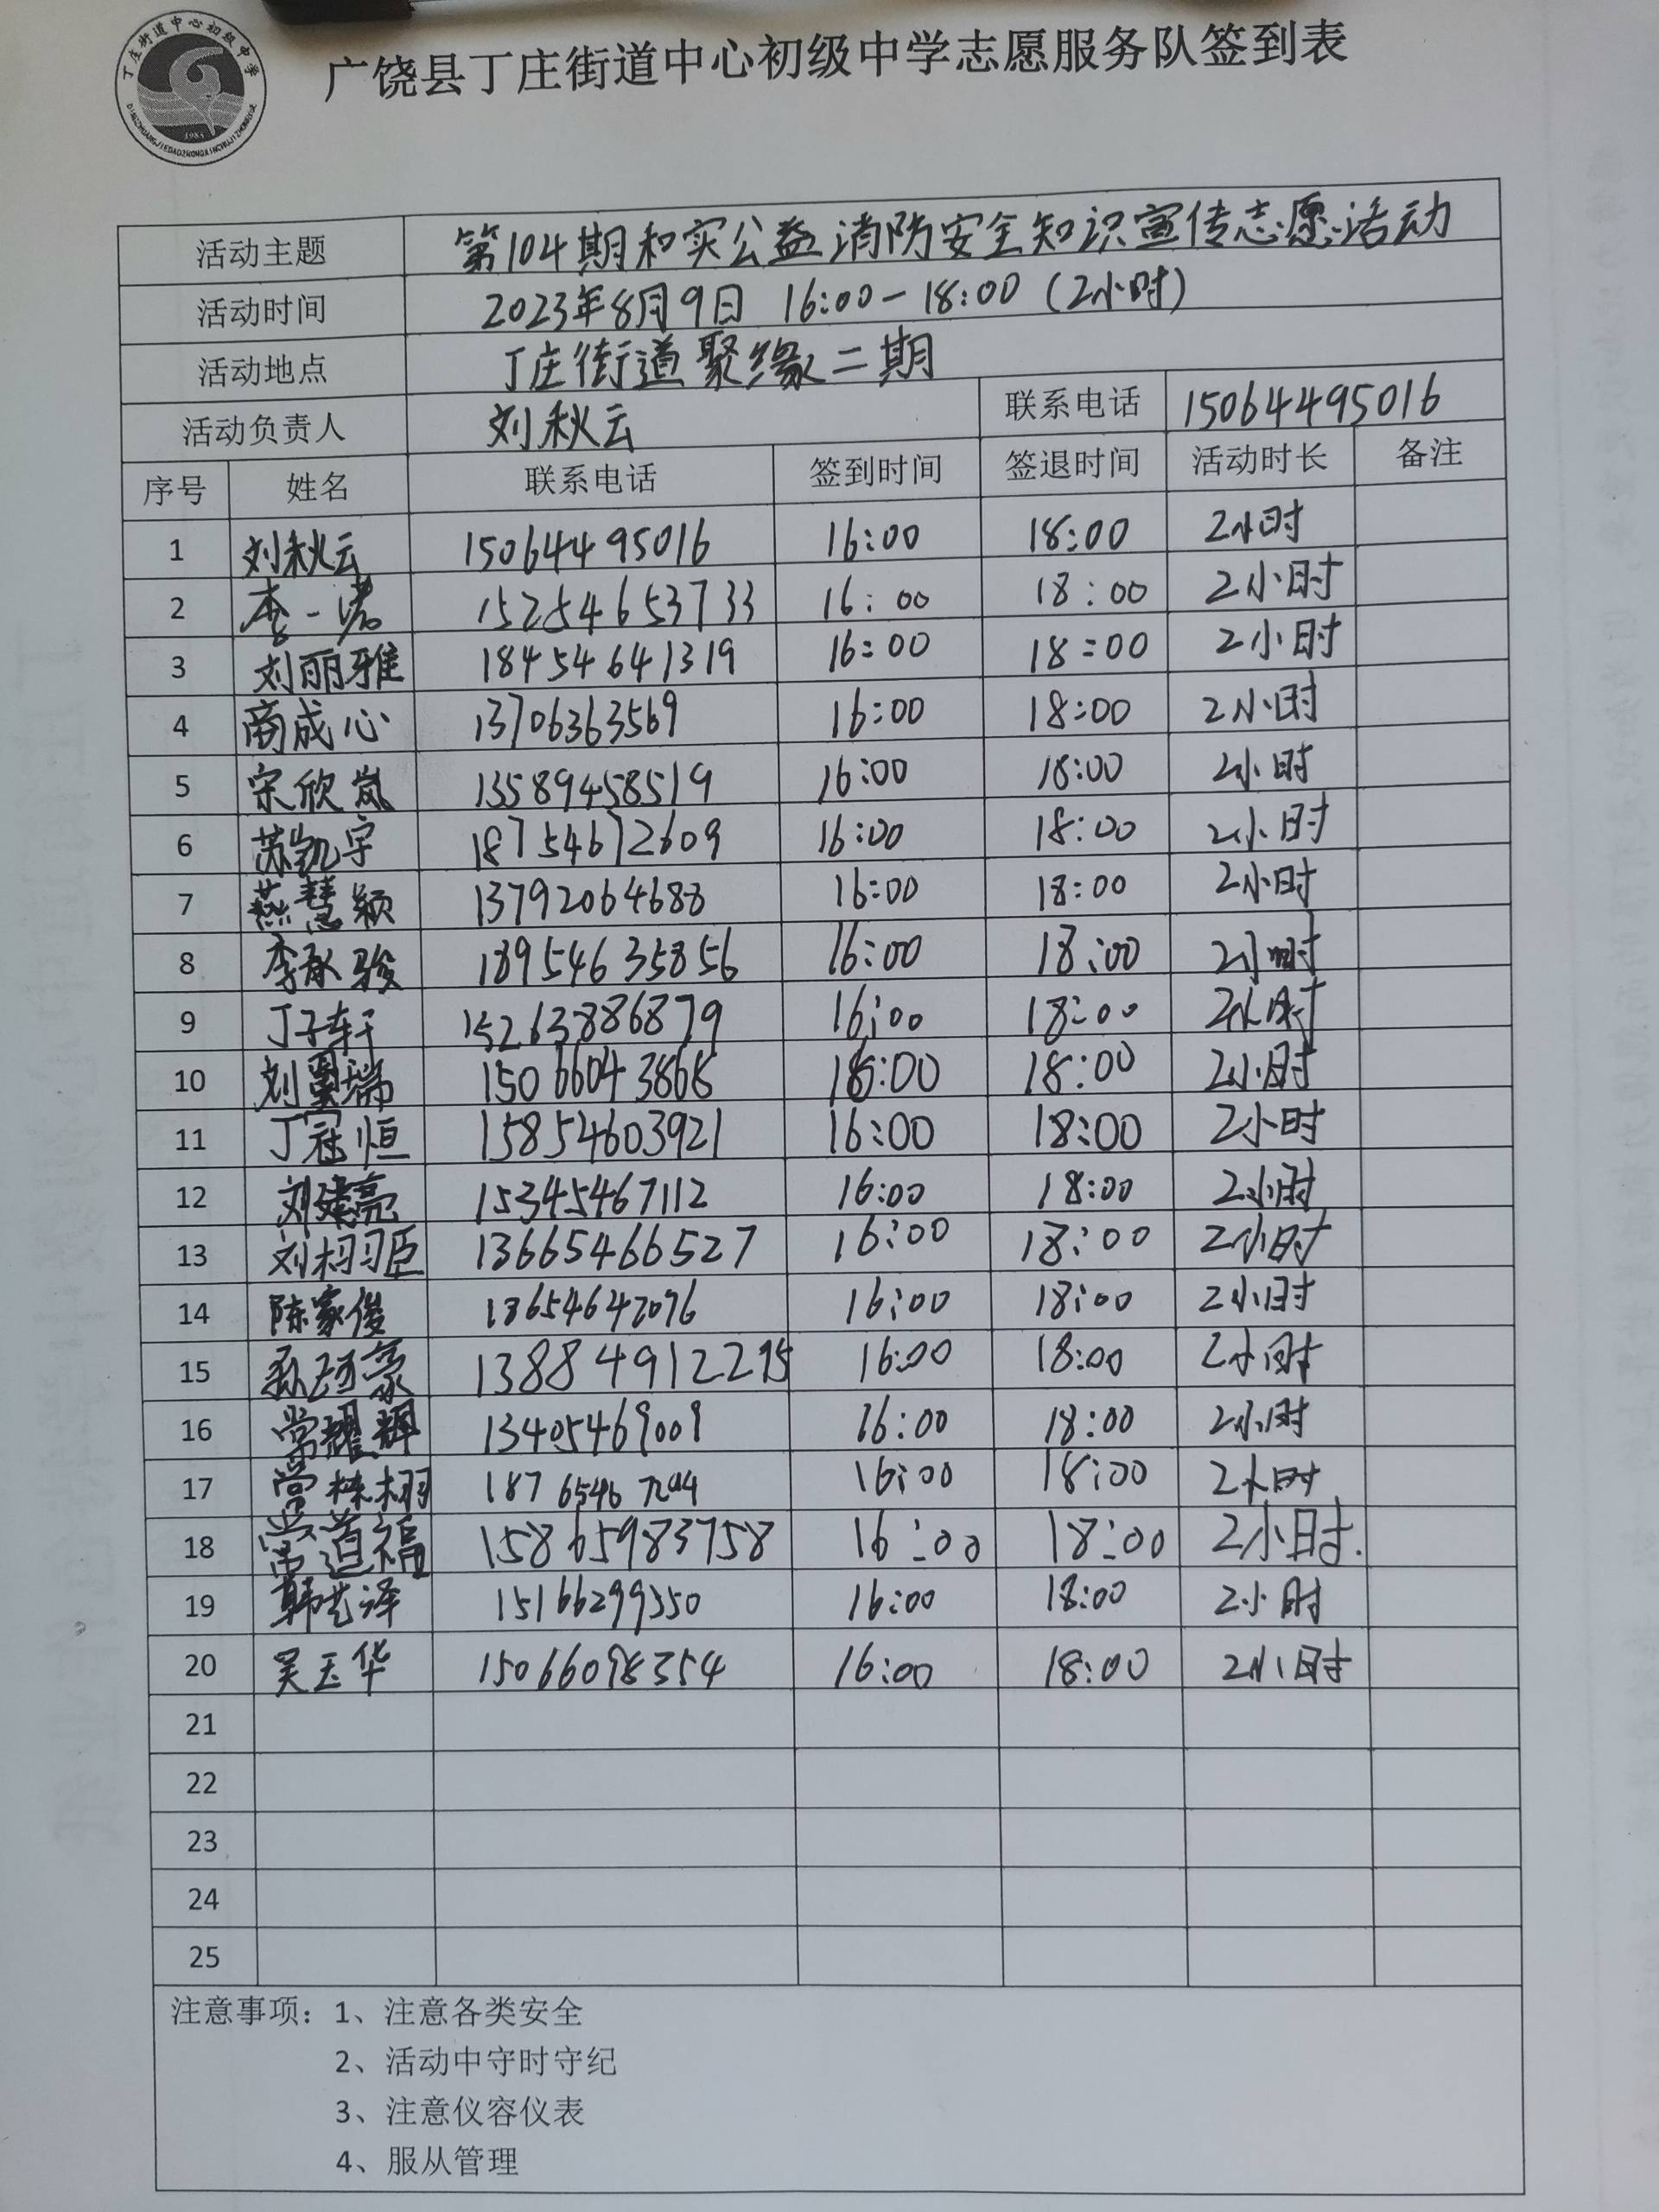 丁庄街道中心初级中学
1983
DINGZHUANGJIEDAOZHONGXINCHUJIZHONGXUE
广饶县丁庄街道中心初级中学志愿服务队签到表
活动主题 第104期和实公益消防安全知识宣传志愿活动
活动时间 2023年8月9日 16:00-18:00(2小时)
活动地点 丁庄街道聚缘二期
活动负责人 刘秋云 联系电话 15064495016
序号 姓名 联系电话 签到时间 签退时间 活动时长 备注
1 刘秋云 15064495016 16:00 18:00 2小时
2 李一诺 15254653733 16:00 18:00 2小时
3 刘丽雅 18454641319 16:00 18:00 2小时
4 商成心 13706363569 16:00 18:00 2小时
5 宋欣岚 13589458519 16:00 18:00 2小时
6 苏凯宇 18754672609 16:00 18:00 2小时
7 燕慧颖 13792064688 16:00 18:00 2小时
8 李承骏 18954635856 16:00 18:00 2小时
9 丁子轩 15263886879 16:00 18:00 2小时
10 15066043868 16:00 18:00 2小时
11 丁冠恒 15854603921 16:00 18:00 2小时
12 刘建亮 15345467112 16:00 18:00 2小时
13 刘栩臣 13665466527 16:00 18:00 2小时
14 陈家俊 16:00 18:00 2小时
15 16:00 18:00 2小时
16 常耀辉 13405469009 16:00 18:00 2小时
17 常栋栩 16:00 18:00 2小时
18 常道福 15865983758 16:00 18:00 2小时.
19 韩艺泽 15166299350 16:00 18:00 2小时
20 吴玉华 15066098354 16:00 18:00 2小时
21
22
23
24
25
注意事项：1、注意各类安全
2、活动中守时守纪
3、注意仪容仪表
4、服从管理